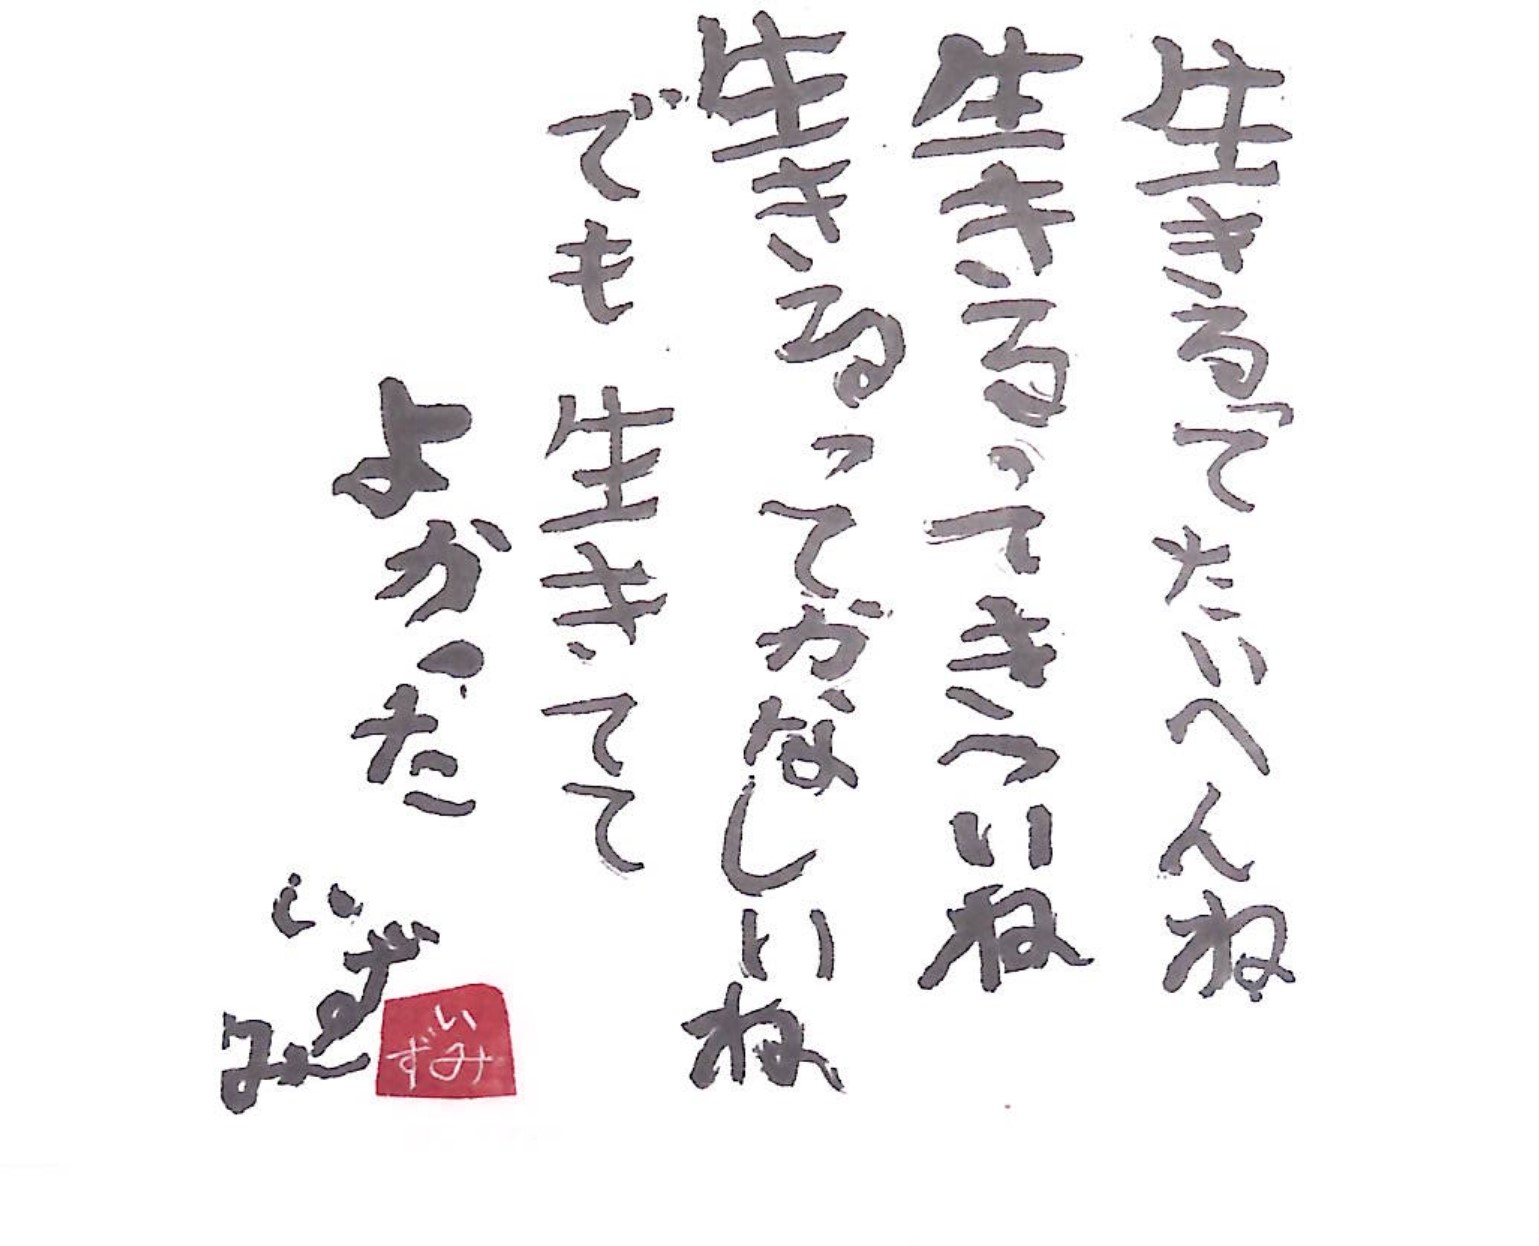 生きるってたいへんね
生きるってきついね
生きるってかなしいね
でも生きてて
よかった
いずみ
いずみ